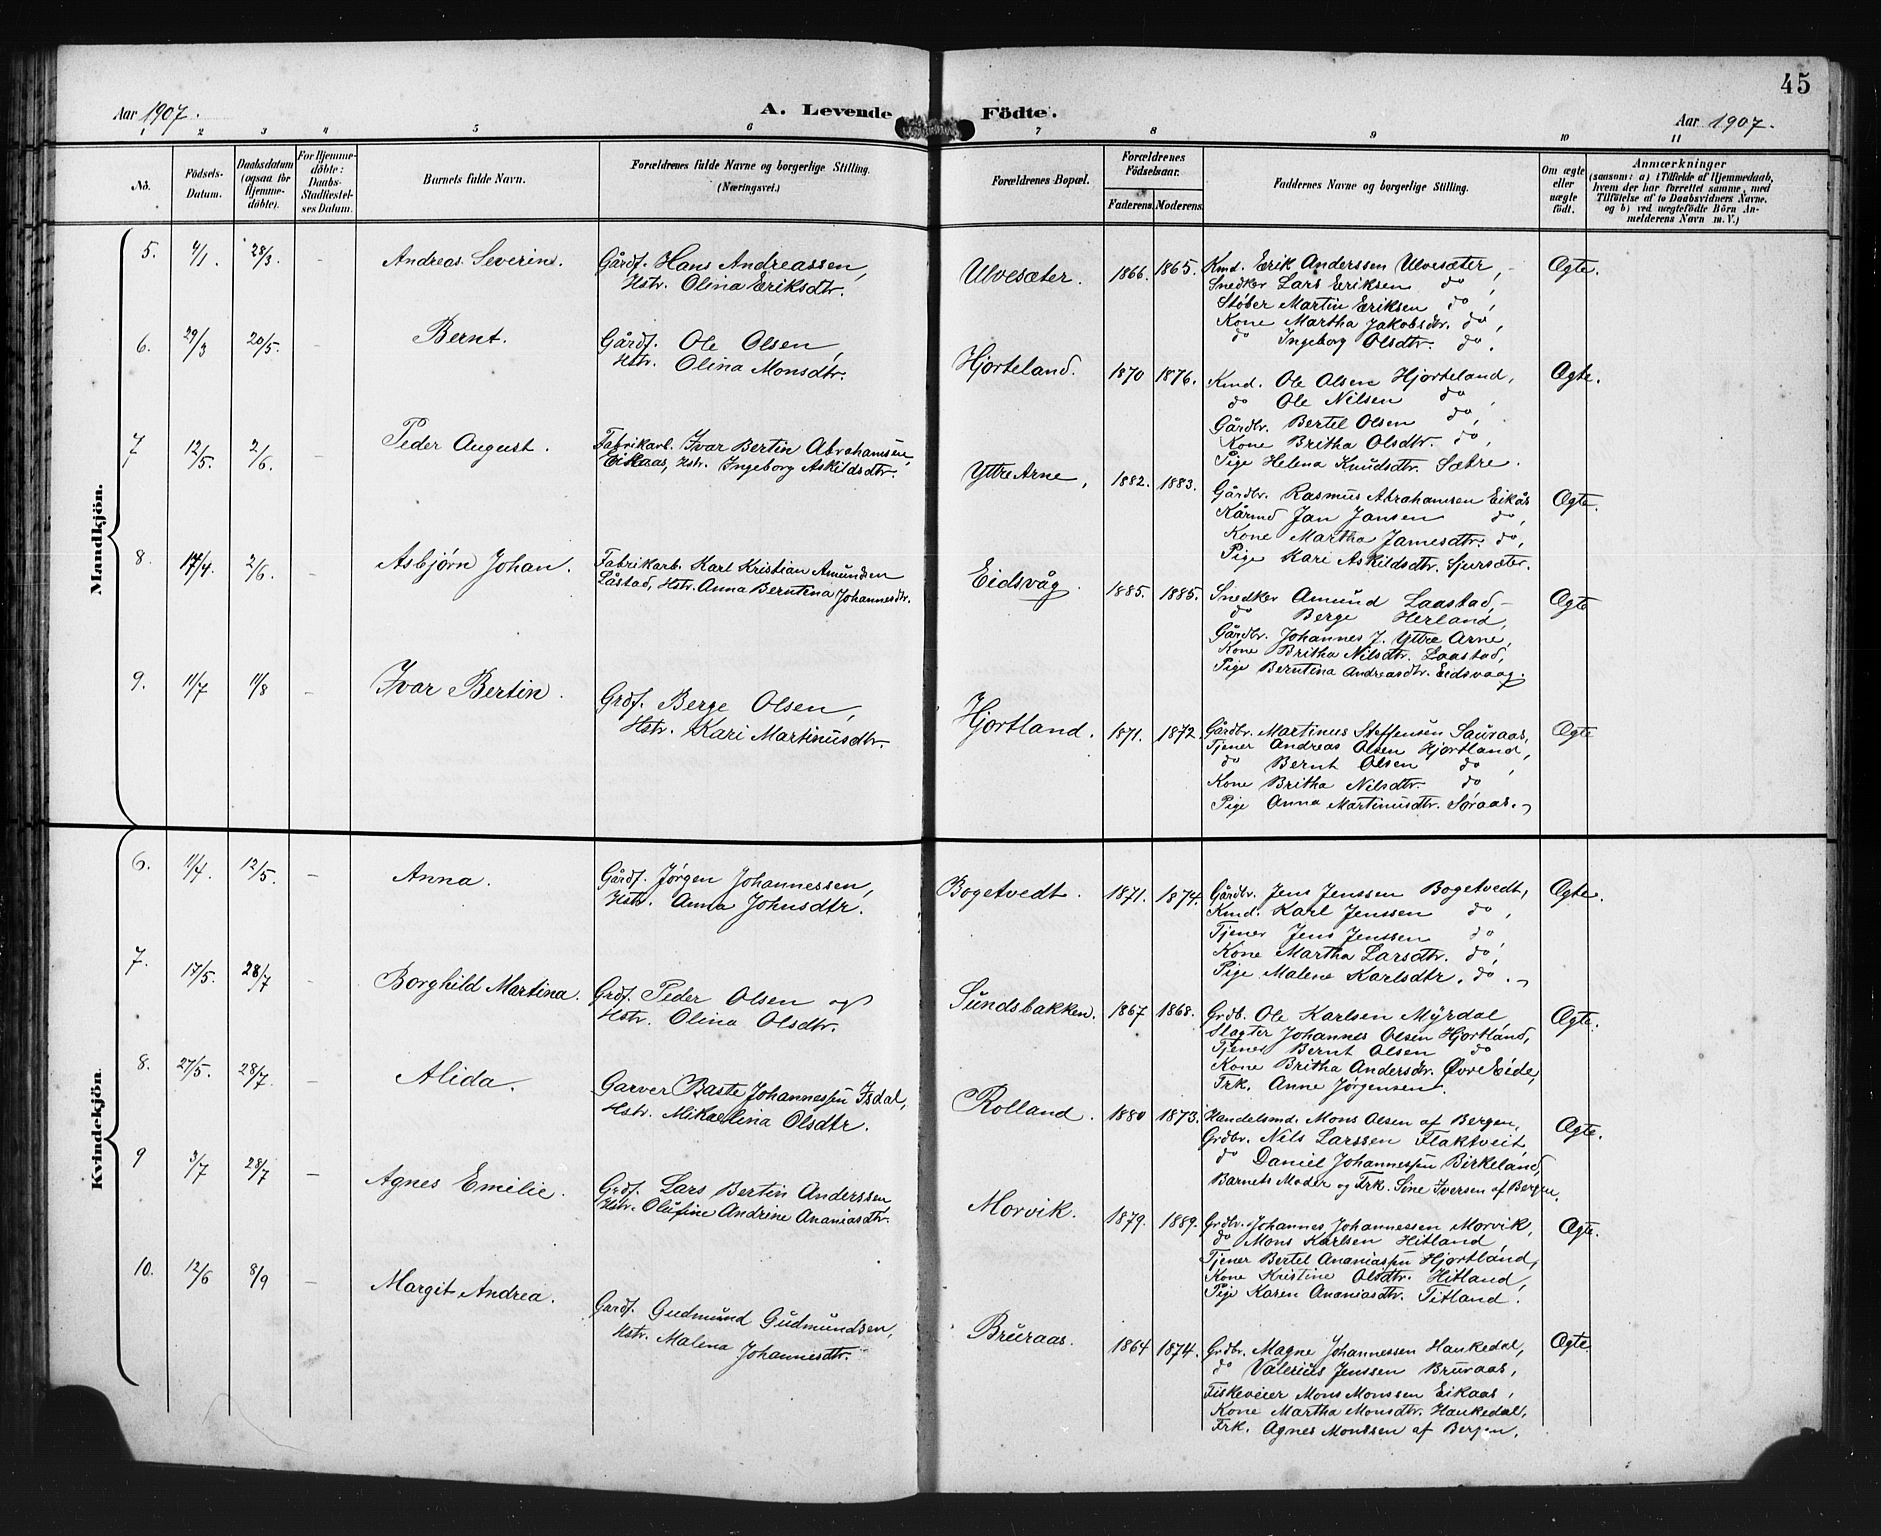 45
Aar 1907. A. Levende Födte. Aar 1907.
1 2 3 4 5 6 7 8 9 10 11
No.
Födsels-
Datum.
Daabsdatum
(ogsaa for
Hjemme-
döbte).
For Hjemme-
döbte:
Daabs-
Stadfæstel-
ses Datum.
Barnets fulde Navn.
Forældrenes fulde Navne og borgerlige Stilling.
(Næringsvei.)
Forældrenes Bopæl.
Forældrenes
Födselsaar.
Faderens. Moderens.
Faddernes Navne og borgerlige Stilling.
Om ægte
eller
uægte
født.
Anmærkninger
(saasom: a) i Tilfælde af Hjemmedaab,
hvem der har forrettet samme, med
Tilföielse af to Daabsvidners Navne,
og b) ved uægtefödte Börn An-
melderens Navn m. V.)
Mandkjön.
5. 4/1. 28/3. - Andreas Severin. Gårdf. Hans Andreassen,
Hstr. Olina Eriksdtr.
Ulvesæter. 1866. 1865. Kmd. Erik Anderssen Ulvesæter, Ægte.
Snedker Lars Eriksen do,
Støber Martin Eriksen do,
Kone Martha Jakobsdtr. do,
do Ingeborg Olsdtr. do.
6. 29/3 20/5. - Bernt. Gårdf. Ole Olsen,
Hstr. Olina Monsdtr.
Hjorteland. 1870 1876. Kmd. Ole Olsen Hjorteland, Ægte.
do Ole Nilsen do,
Gårdbr. Bertel Olsen do,
Kone Britha Olsdtr. do,
Pige Helena Knudsdtr. Sætre.
7 12/5. 2/6. - Peder August. Fabrikarb. Ivar Bertin Abrahamsen
Eikaas, Hstr. Ingeborg Askildsdtr.
Yttre Arne, 1882. 1883. Gårdbr. Rasmus Abrahamsen Eikås Ægte.
Kårmd Jan Jansen do,
Kone Martha Jamesdtr. do,
Pige Kari Askildsdtr. Sjursæter.
8. 17/4. 2/6. - Asbjørn Johan. Fabrikarb. Karl Kristian Amundsen
Låstad, Hstr. Anna Berntina Johannesdtr.
Eidsvåg. 1885. 1885. Snedker Amund Laastad, Ægte
do Berge Herland,
Gårdbr. Johannes J. Yttre Arne,
Kone Britha Nilsdtr. Laastad,
Pige Berntina Andreasdtr. Eidsvaag.
9. 11/7 11/8 - Ivar Bertin. Grdf. Berge Olsen,
Hstr. Kari Martinusdtr.
Hjortland. 1871. 1872. Gårdbr. Martinus Steffensen Sauraas, Ægte
Tjener Andreas Olsen Hjortland,
do Bernt Olsen do,
Kone Britha Nilsdtr. do
Pige Anna Martinusdtr. Søraas.
Kvindekjön.
6. 11/4. 12/5. - Anna. Gårdf. Jørgen Johannessen,
Hstr. Anna Johnsdtr.
Bogetvedt. 1871. 1874. Gårdbr. Jens Jenssen Bogetvedt, Ægte.
Kmd. Karl Jenssen do,
Tjener Jens Jenssen do,
Kone Martha Larsdtr. do,
Pige Malene Karlsdtr. do.
7. 17/5. 28/7 - Borghild Martina. Grdf. Peder Olsen og
Hstr. Olina Olsdtr.
Sundsbakken. 1867 1868. Grdb. Ole Karlsen Myrdal Ægte.
Slagter Johannes Olsen Hjortland,
Tjener Bernt Olsen do
Kone Britha Andersdtr. Øvre Eide,
Frk. Anne Jørgensen.
8. 27/5. 28/7. - Alida. Garver Baste Johannessen Isdal,
Hstr. Mikaelina Olsdtr.
Rolland. 1880 1873. Handelsmd. Mons Olsen af Bergen, Ægte.
Grdbr. Nils Larssen Flaktveit,
do Daniel Johannessen Birkeland,
Barnets Moder og Frk. Sine Iversen af Bergen.
9 3/7 28/7 - Agnes Emilie. Grdf. Lars Bertin Anderssen,
Hstr. Olufine Andrine Ananiasdtr.
Morvik. 1879. 1889. Grdbr. Johannes Johannessen Morvik, Ægte.
do Mons Karlsen Hitland,
Tjener Bertel Ananiassen Hjortland,
Kone Kristine Olsdtr. Hitland,
Pige Karen Ananiasdtr. Titland.
10. 12/6 8/9 - Margit Andrea. Gardf. Gudmund Gudmundsen,
Hstr. Malena Johannesdtr.
Bruraas. 1864 1874. Grdbr. Magne Johannessen Haukedal, Ægte.
do Valerius Jenssen Bruraas,
Fiskeveier Mons Monssen Eikaas,
Kone Martha Monsdtr. Haukedal,
Frk. Agnes Monssen af Bergen.